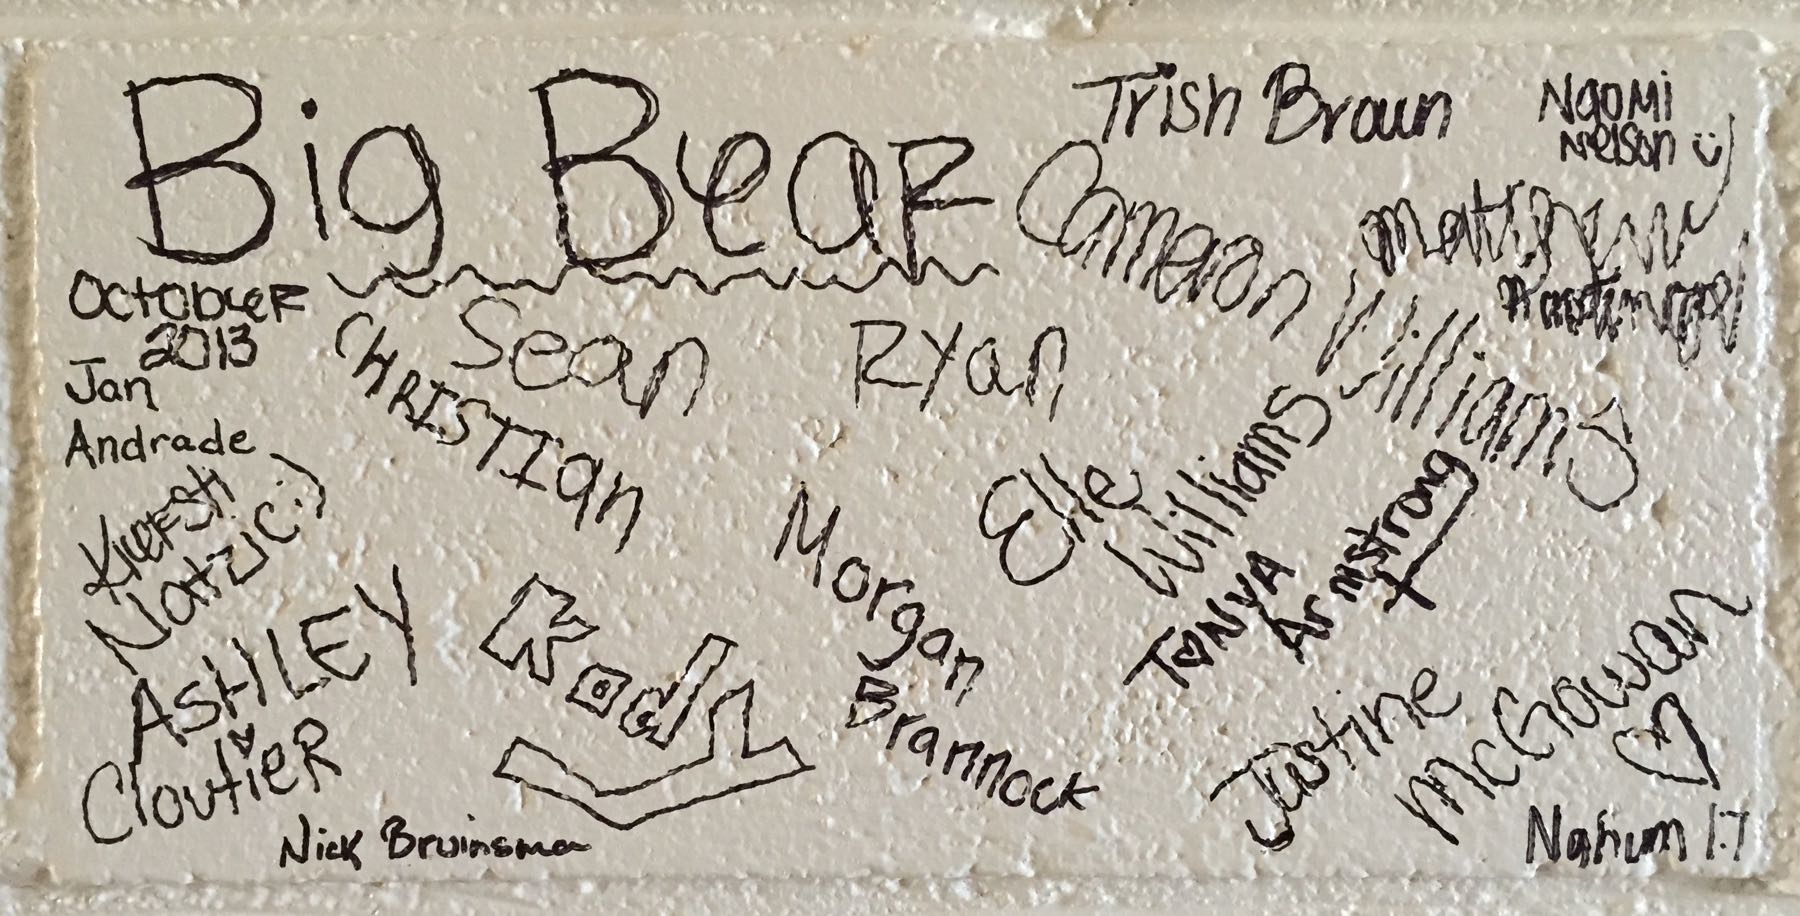 Big Bear
October
2013
Trish Braun
Naomi
Nielson :)
Cameron
Williams
Matthew
Sean
Ryan
Christian
Jan
Andrade
Kiersh
Natzic :)
ASHLEY
Cloutier
Kody
Morgan
Brannock
Elle
Williams
TONYA
Armstrong
Justine
McGowan
Nick Bruinsma
Nahum 1:7